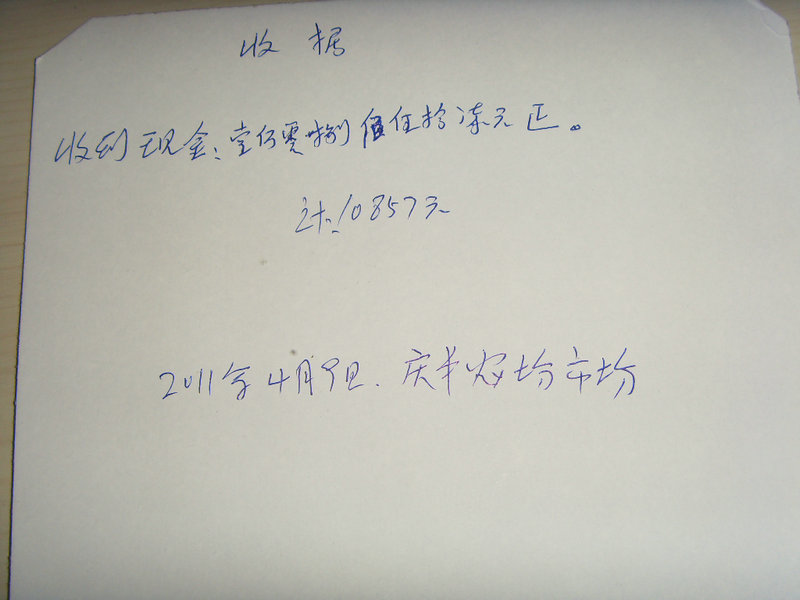 收据
收到现金：壹仟零捌佰伍拾柒元正。
计：10857元
2011年4月9日．庆丰农场市场